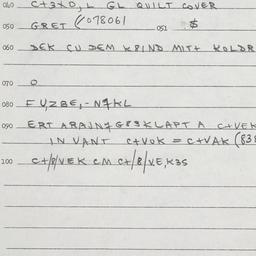 040 C+3XD, L GL QUILT COVER
050 GRET (078061 051 $
060 DEK CU DEM KPIND MIT+ KOLDR
070 O
080 F UZBE, - N4KL
090 ERT ARAJN4 GR3KLAPT A C+VEK
IN VANT C+VOK = C+VAK (838
100 C+/8/VEK CM C+/8/VE, K3S